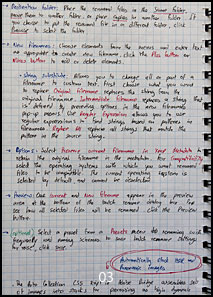 • Destination folder: Place the renamed files in the same folder,
move them to another folder, or place copies in another folder. If
you choose to put the renamed file in a different folder, click
Browse to select the folder.
• New Filenames: Choose elements from the menus and enter text
as appropriate to create new filename, click the Plus button
Minus button to add or delete elements.
• String Substitute: Allows you to change all or part of a
filename to custom text. First choose what you want
to replace. Original filename replaces the string from the
original filename. Intermediate filename replaces a string that
is defined by previous options in the new filename
pop-up menus. Use Regular Expression allows you to use
regular expressions to find strings based on patterns in
filenames. Replace All replaces all strings that match the
pattern in the source string.
• Options: Select Preserve current filename in XMP Metadata to
retain the original filename in the metadata. For Compatibility
select the operating systems with which you want renamed
files to be compatible. The current operating system is
selected by default and cannot be deselected.
• Preview: One current and new filename appear in the preview
area at the bottom of the batch rename dialog box. To
see how all selected files will be renamed, click the Preview
button.
(optional) Select a preset from the Presets menu to
frequently used naming schemes. To save batch rename settings
for reuse, click save.
Automatically stack HDR and
Panoramic images
03
• The Auto Collection CS5 script in Adobe Bridge assembles sets
of images into stacks for processing as high dynamic